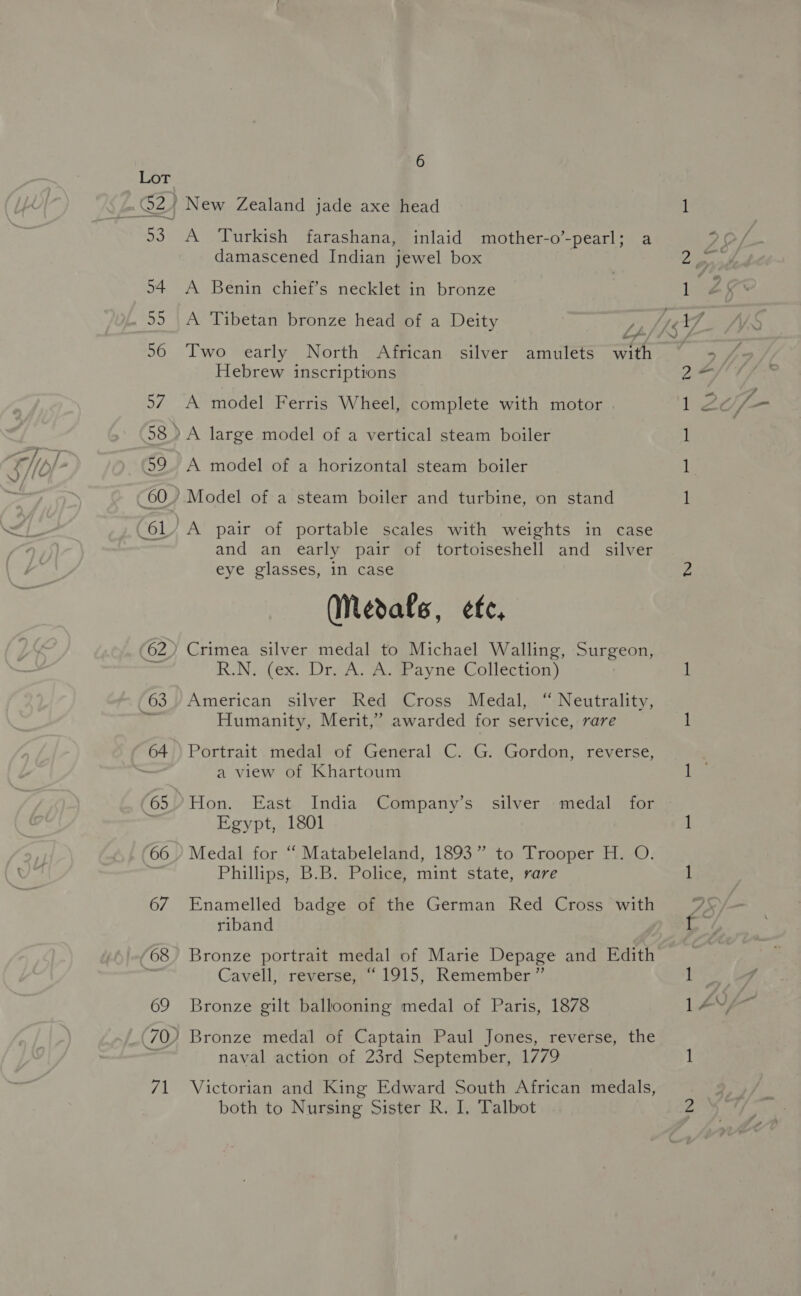 6
Lot
52 New Zealand jade axe head 1
53 A Turkish farashana, inlaid mother-o’-pearl; a
damascened Indian jewel box 2
54 A Benin chief’s necklet in bronze 1
55 A Tibetan bronze head of a Deity 1
56 Two early North African silver amulets with
Hebrew inscriptions 2
57 A model Ferris Wheel, complete with motor 1
58 A large model of a vertical steam boiler 1
59 A model of a horizontal steam boiler 1
60 Model of a steam boiler and turbine, on stand 1
61 A pair of portable scales with weights in case
and an early pair of tortoiseshell and silver
eye glasses, in case 2
Medals, etc.
62 Crimea silver medal to Michael Walling, Surgeon,
R.N. (ex. Dr. A. A. Payne Collection) 1
63 American silver Red Cross Medal, “ Neutrality,
Humanity, Merit,” awarded for service, rare 1
64 Portrait medal of General C. G. Gordon, reverse,
a view of Khartoum 1
65 Hon. East India Company’s silver medal for
Egypt, 1801 1
66 Medal for “ Matabeleland, 1893 ” to Trooper H. O.
Phillips, B.B. Police, mint state, rare 1
67 Enamelled badge of the German Red Cross with
riband 1
68 Bronze portrait medal of Marie Depage and Edith
Cavell, reverse, “ 1915, Remember ” 1
69 Bronze gilt ballooning medal of Paris, 1878 1
70 Bronze medal of Captain Paul Jones, reverse, the
naval action of 23rd September, 1779 1
71 Victorian and King Edward South African medals,
both to Nursing Sister R. I. Talbot 2